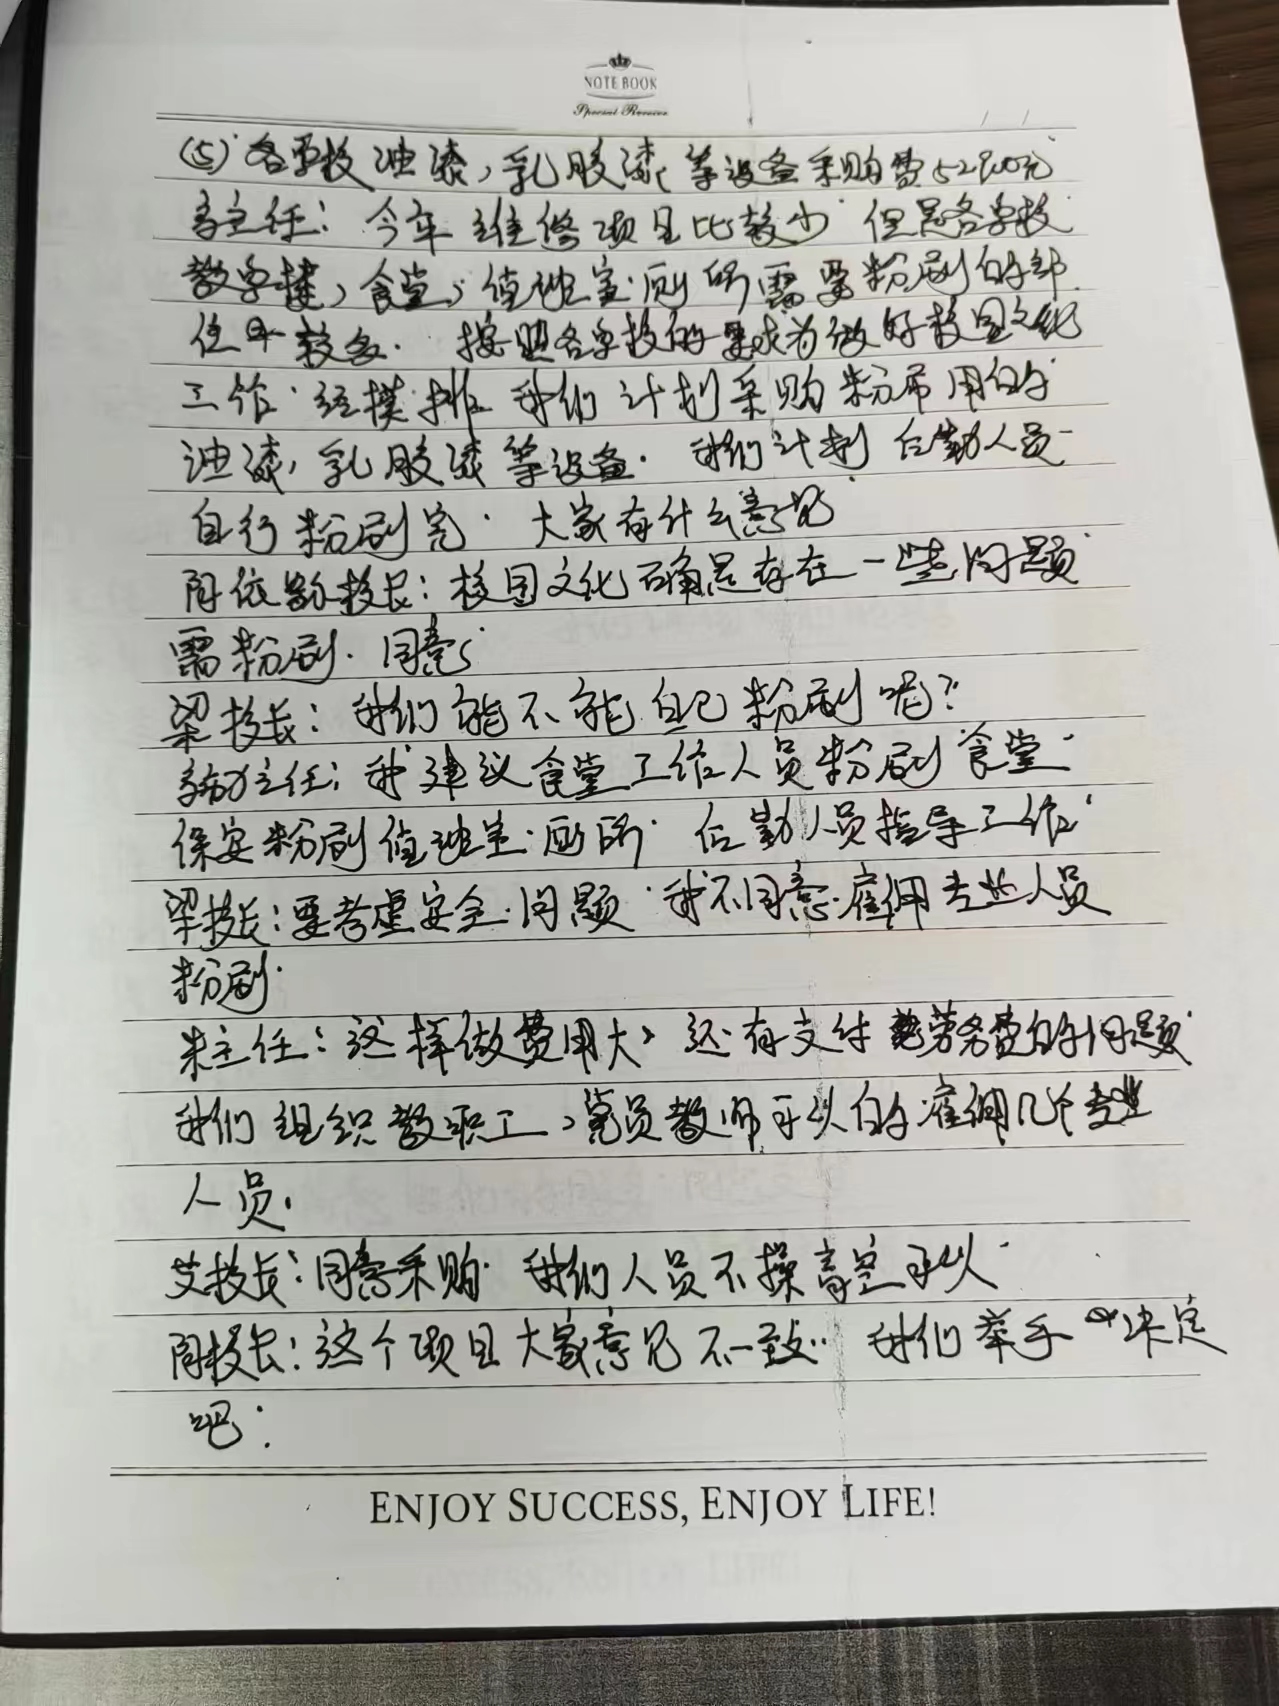 NOTE BOOK
Special Reveree
(5) 各学校油漆，乳胶漆等设备采购费52900元
主任：今年维修项目比较少 但是各学校
教学楼，食堂，值班室.厕所需要粉刷的部
位比较多. 按照各学校的要求为做好校园文化
工作 经摸排 我们计划采购粉刷用的
油漆，乳胶漆等设备. 我们计划后勤人员
自行粉刷完. 大家有什么意见
阿依 校长：校园文化确是存在一些问题
需粉刷. 同意
梁校长：我们能不能自己粉刷呢？
主任：我建议食堂工作人员粉刷食堂
保安粉刷值班室.厕所. 后勤人员指导工作
梁校长：要考虑安全问题 我不同意.雇佣专业人员
粉刷.
朱主任：这样做费用大，还有支付劳务费的问题
我们组织教职工，党员教师可以的雇佣几个专业
人员.
艾校长：同意采购. 我们人员不操高空可以
阿校长：这个项目大家意见不一致.. 我们举手决定
吧.
ENJOY SUCCESS, ENJOY LIFE!